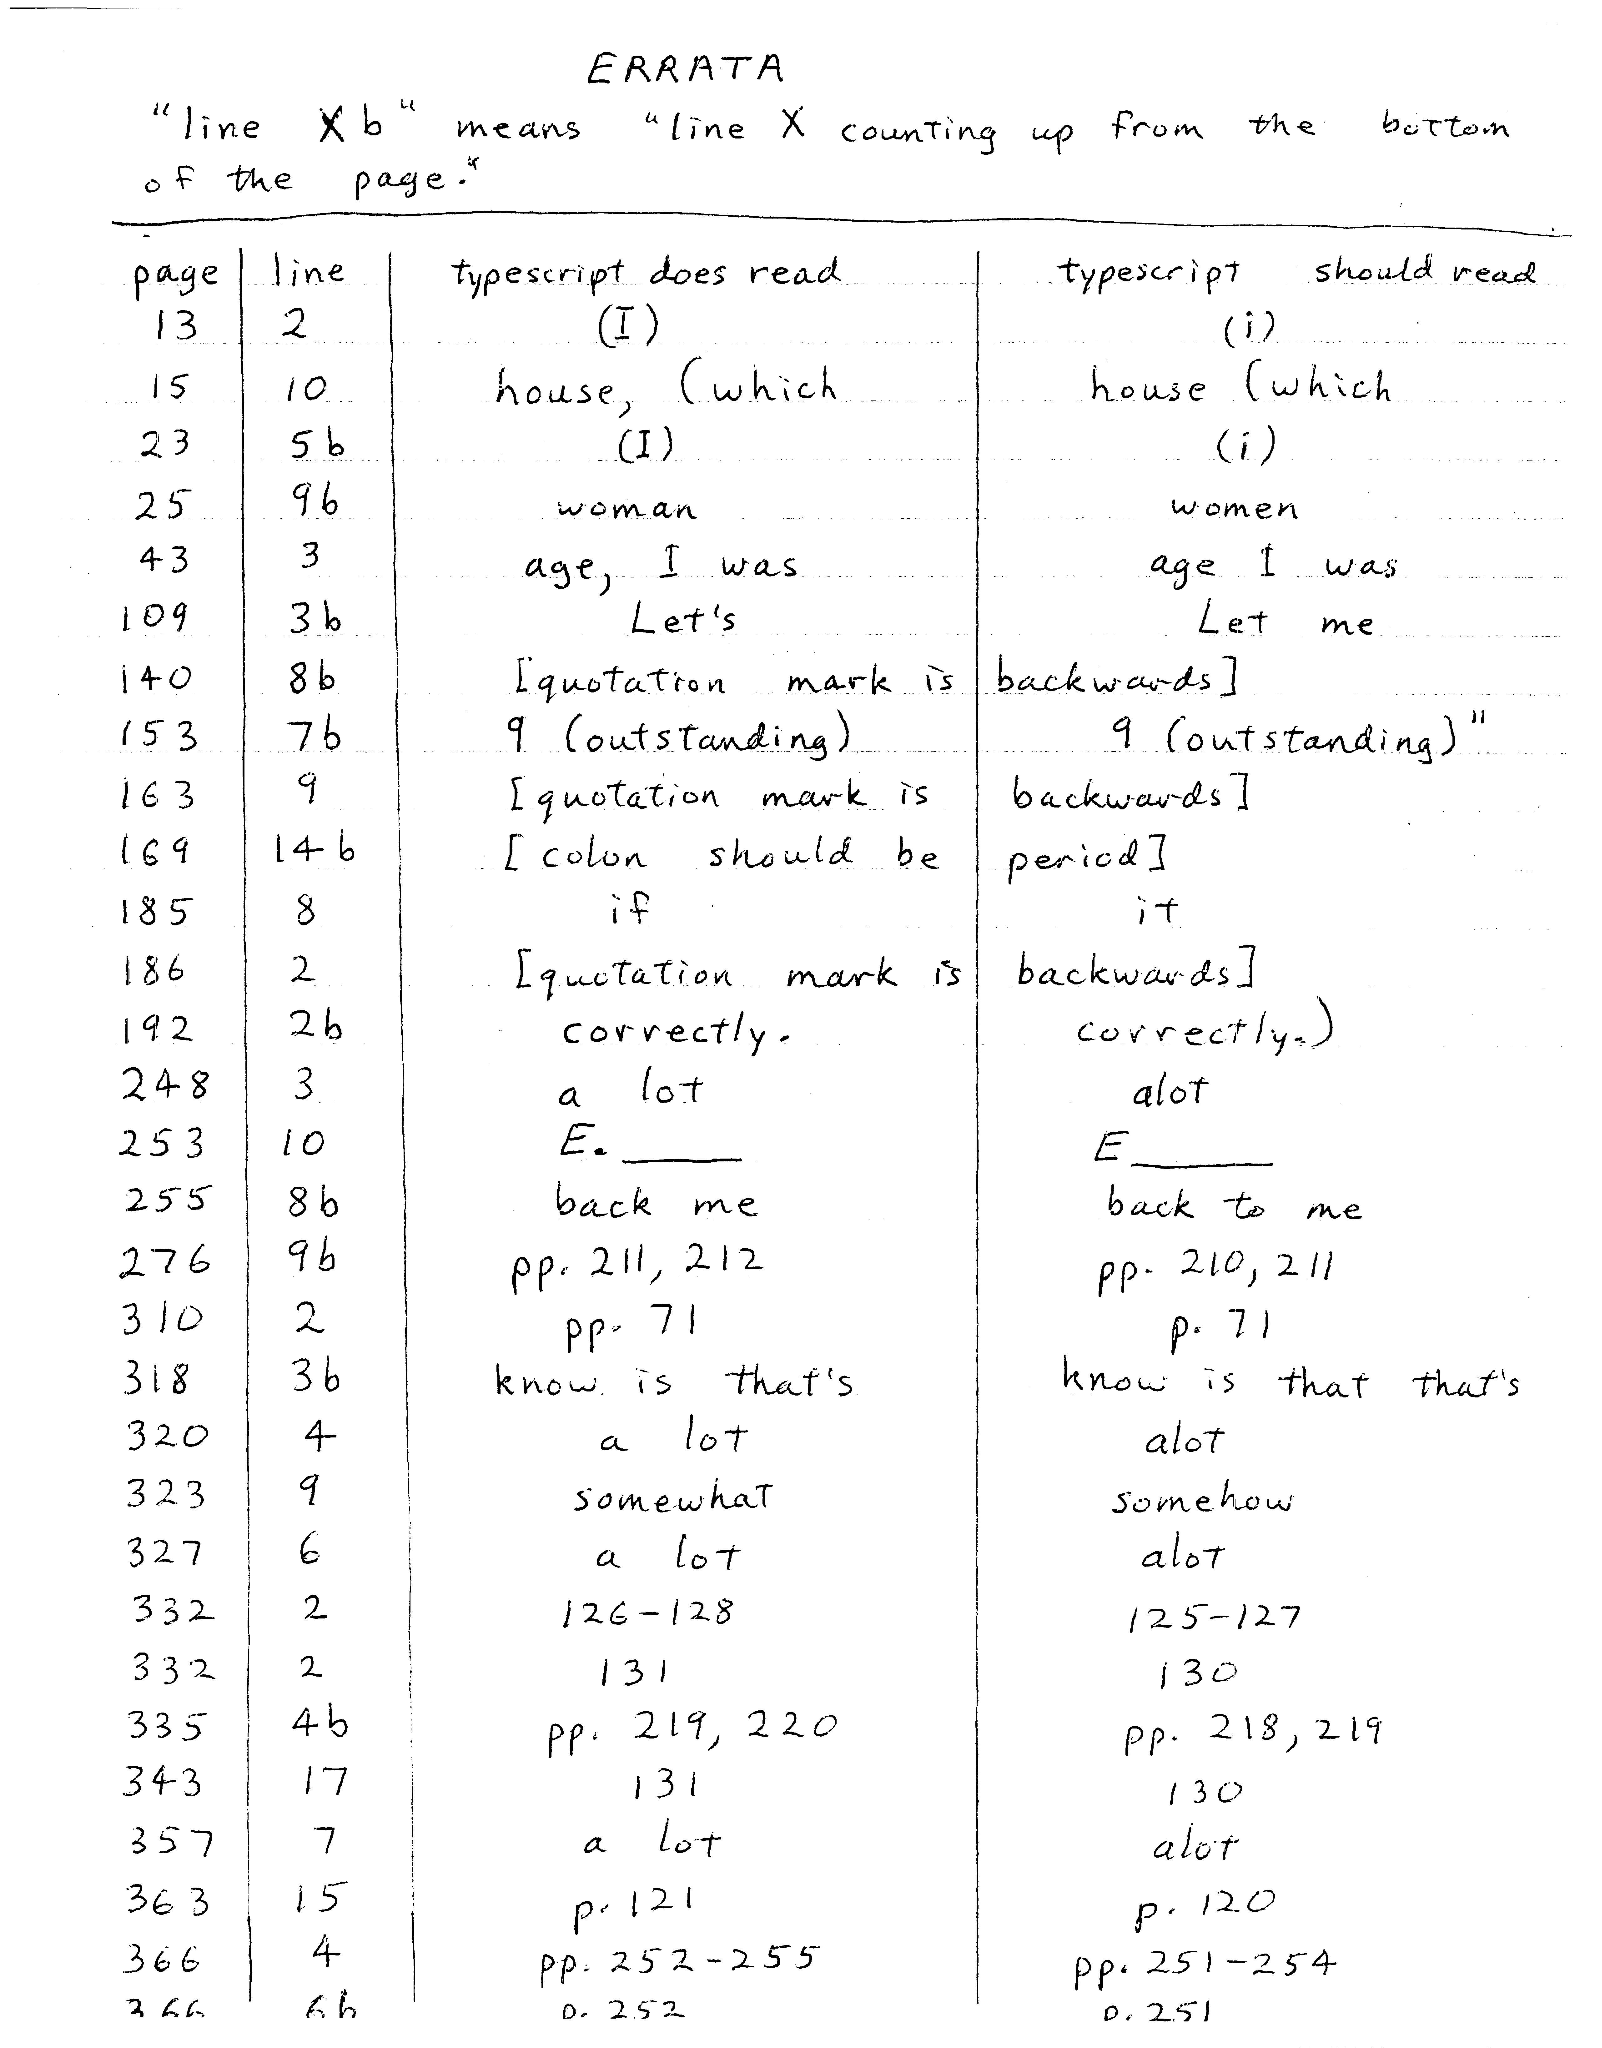 ERRATA
"line Xb" means "line X counting up from the bottom
of the page."
page line typescript does read typescript should read
13 2 (I) (i)
15 10 house, (which house (which
23 5b (I) (i)
25 9b woman women
43 3 age, I was age I was
109 3b Let's Let me
140 8b [quotation mark is backwards]
153 7b 9 (outstanding) 9 (outstanding)"
163 9 [quotation mark is backwards]
169 14b [colon should be period]
185 8 if it
186 2 [quotation mark is backwards]
192 2b correctly. correctly.)
248 3 a lot alot
253 10 E. ____ E ____
255 8b back me back to me
276 9b pp. 211, 212 pp. 210, 211
310 2 pp. 71 p. 71
318 3b know is that's know is that that's
320 4 a lot alot
323 9 somewhat somehow
327 6 a lot alot
332 2 126-128 125-127
332 2 131 130
335 4b pp. 219, 220 pp. 218, 219
343 17 131 130
357 7 a lot alot
363 15 p. 121 p. 120
366 4 pp. 252-255 pp. 251-254
366 6b p. 252 p. 251